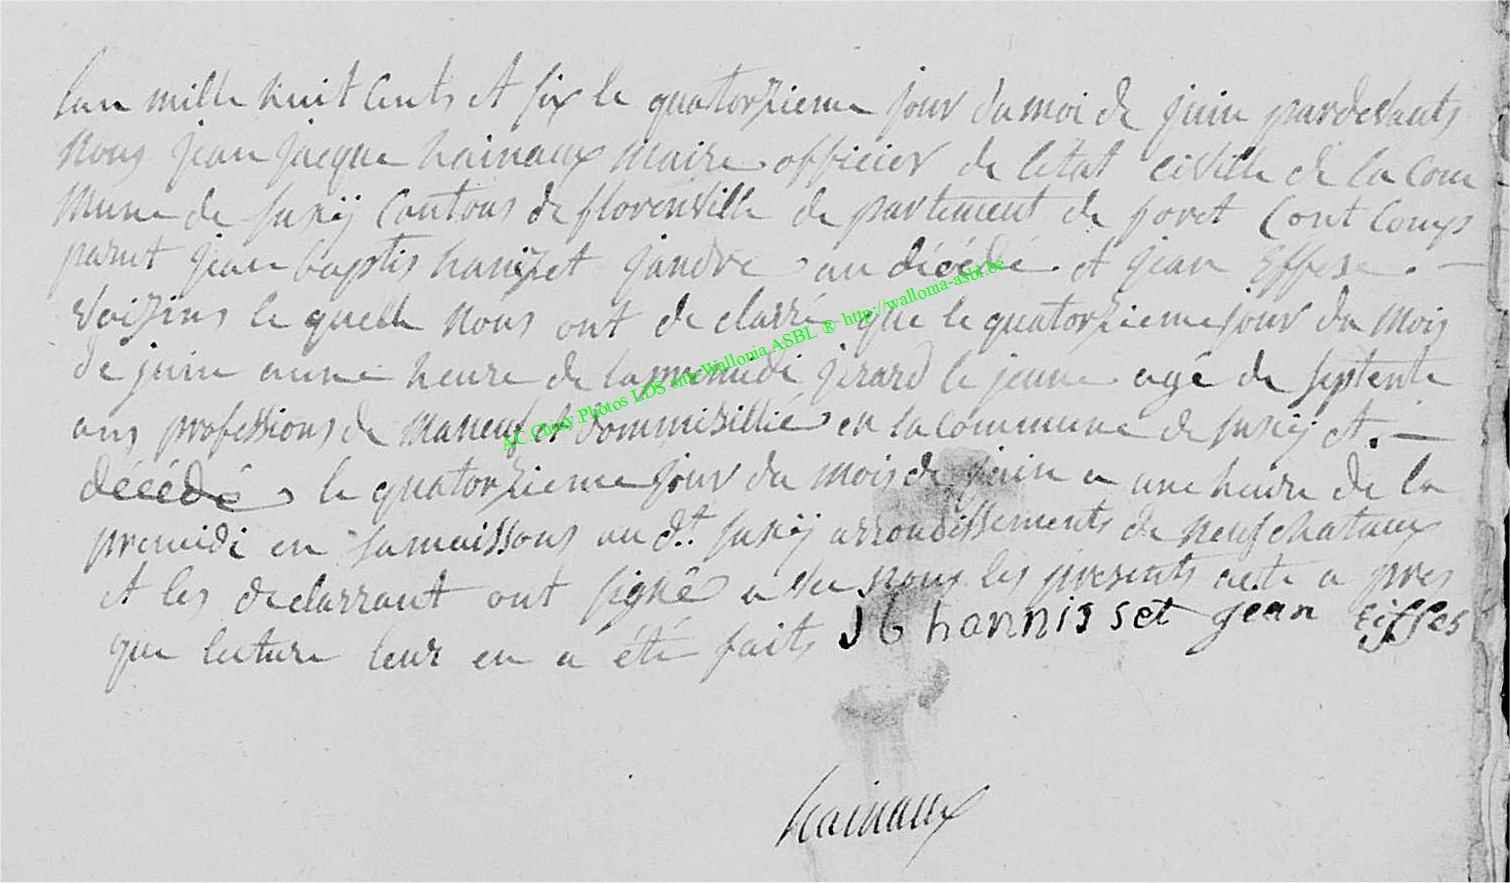 lan mille huit Cents et six le quatorzieme jour du moi de juin pardevants
nous jean jacque hainaux maire officier de letat civille de la Com
mune de suxÿ Cantons de florenville de partement de foret Cont Comp
parut jean baptis hanizet jandre au décédé et jean Effese. —
voizins le quelle nous ont de clarré que le quatorzieme jour du mois
de juin a une heure de lapremidi jerard le jeune agé de septente
ans professions de maneuf et dommisillié en la commune de suxÿ et. —
décédé le quatorzieme jour du mois de juin a une heure de la
premidi en samaissons au d.t suxÿ arrondissements de neufchataux
et les declarrant ont signé avec nous les presents acte a pres
que lecture leur en a été faits J b hannisset jean Eiffes
hainaux
AC Chiny Photos LDS Wallonia ASBL ® http://wallonia-asbl.be